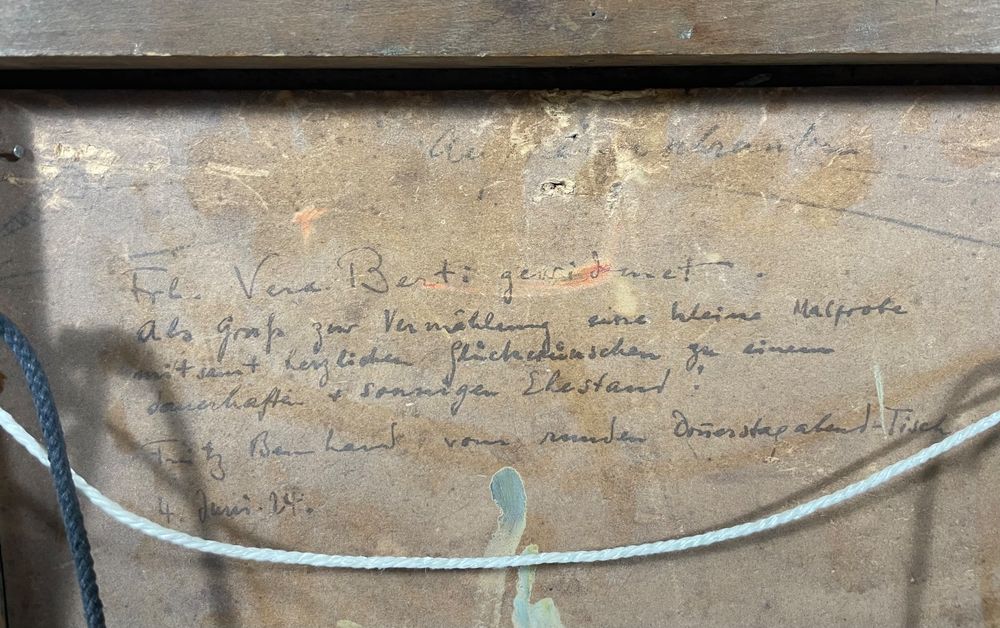 Frl. Vera Berti gewidmet.
Als Gruß zur Vermählung eine kleine Malprobe
mitsamt herzlichen Glückwünschen zu einem
dauerhaften + sonnigen Ehestand!
Fritz vom runden Donnerstagabend-Tisch
4. Juni 24.